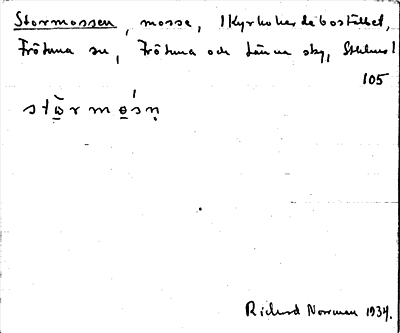 Stormossen, mosse, Kyrkoherdebostället,
Frötuna sn, Frötuna och Länna skg, Sthlms l
105
stὼ̱rmɵ̱́sṇ
Richard Norrman 1934.